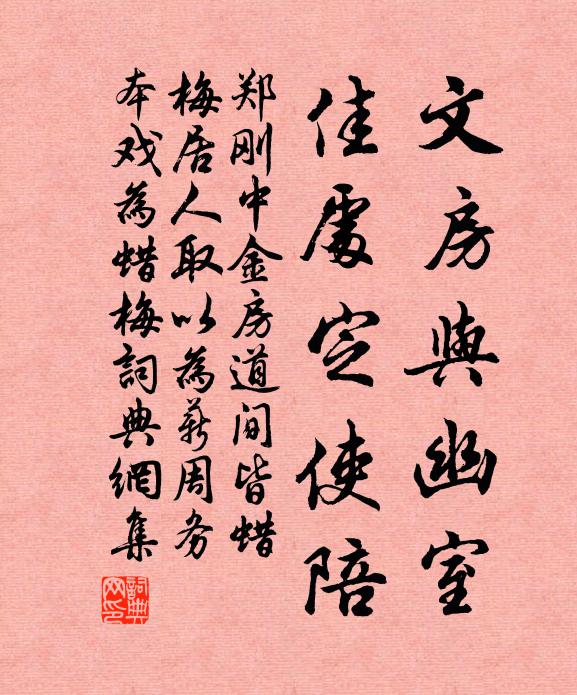 文房與幽室
佳處定使陪
郑刚中金房道间皆蜡
梅居人取以為薪周务
本戏為蜡梅詞典網集
詞典网印